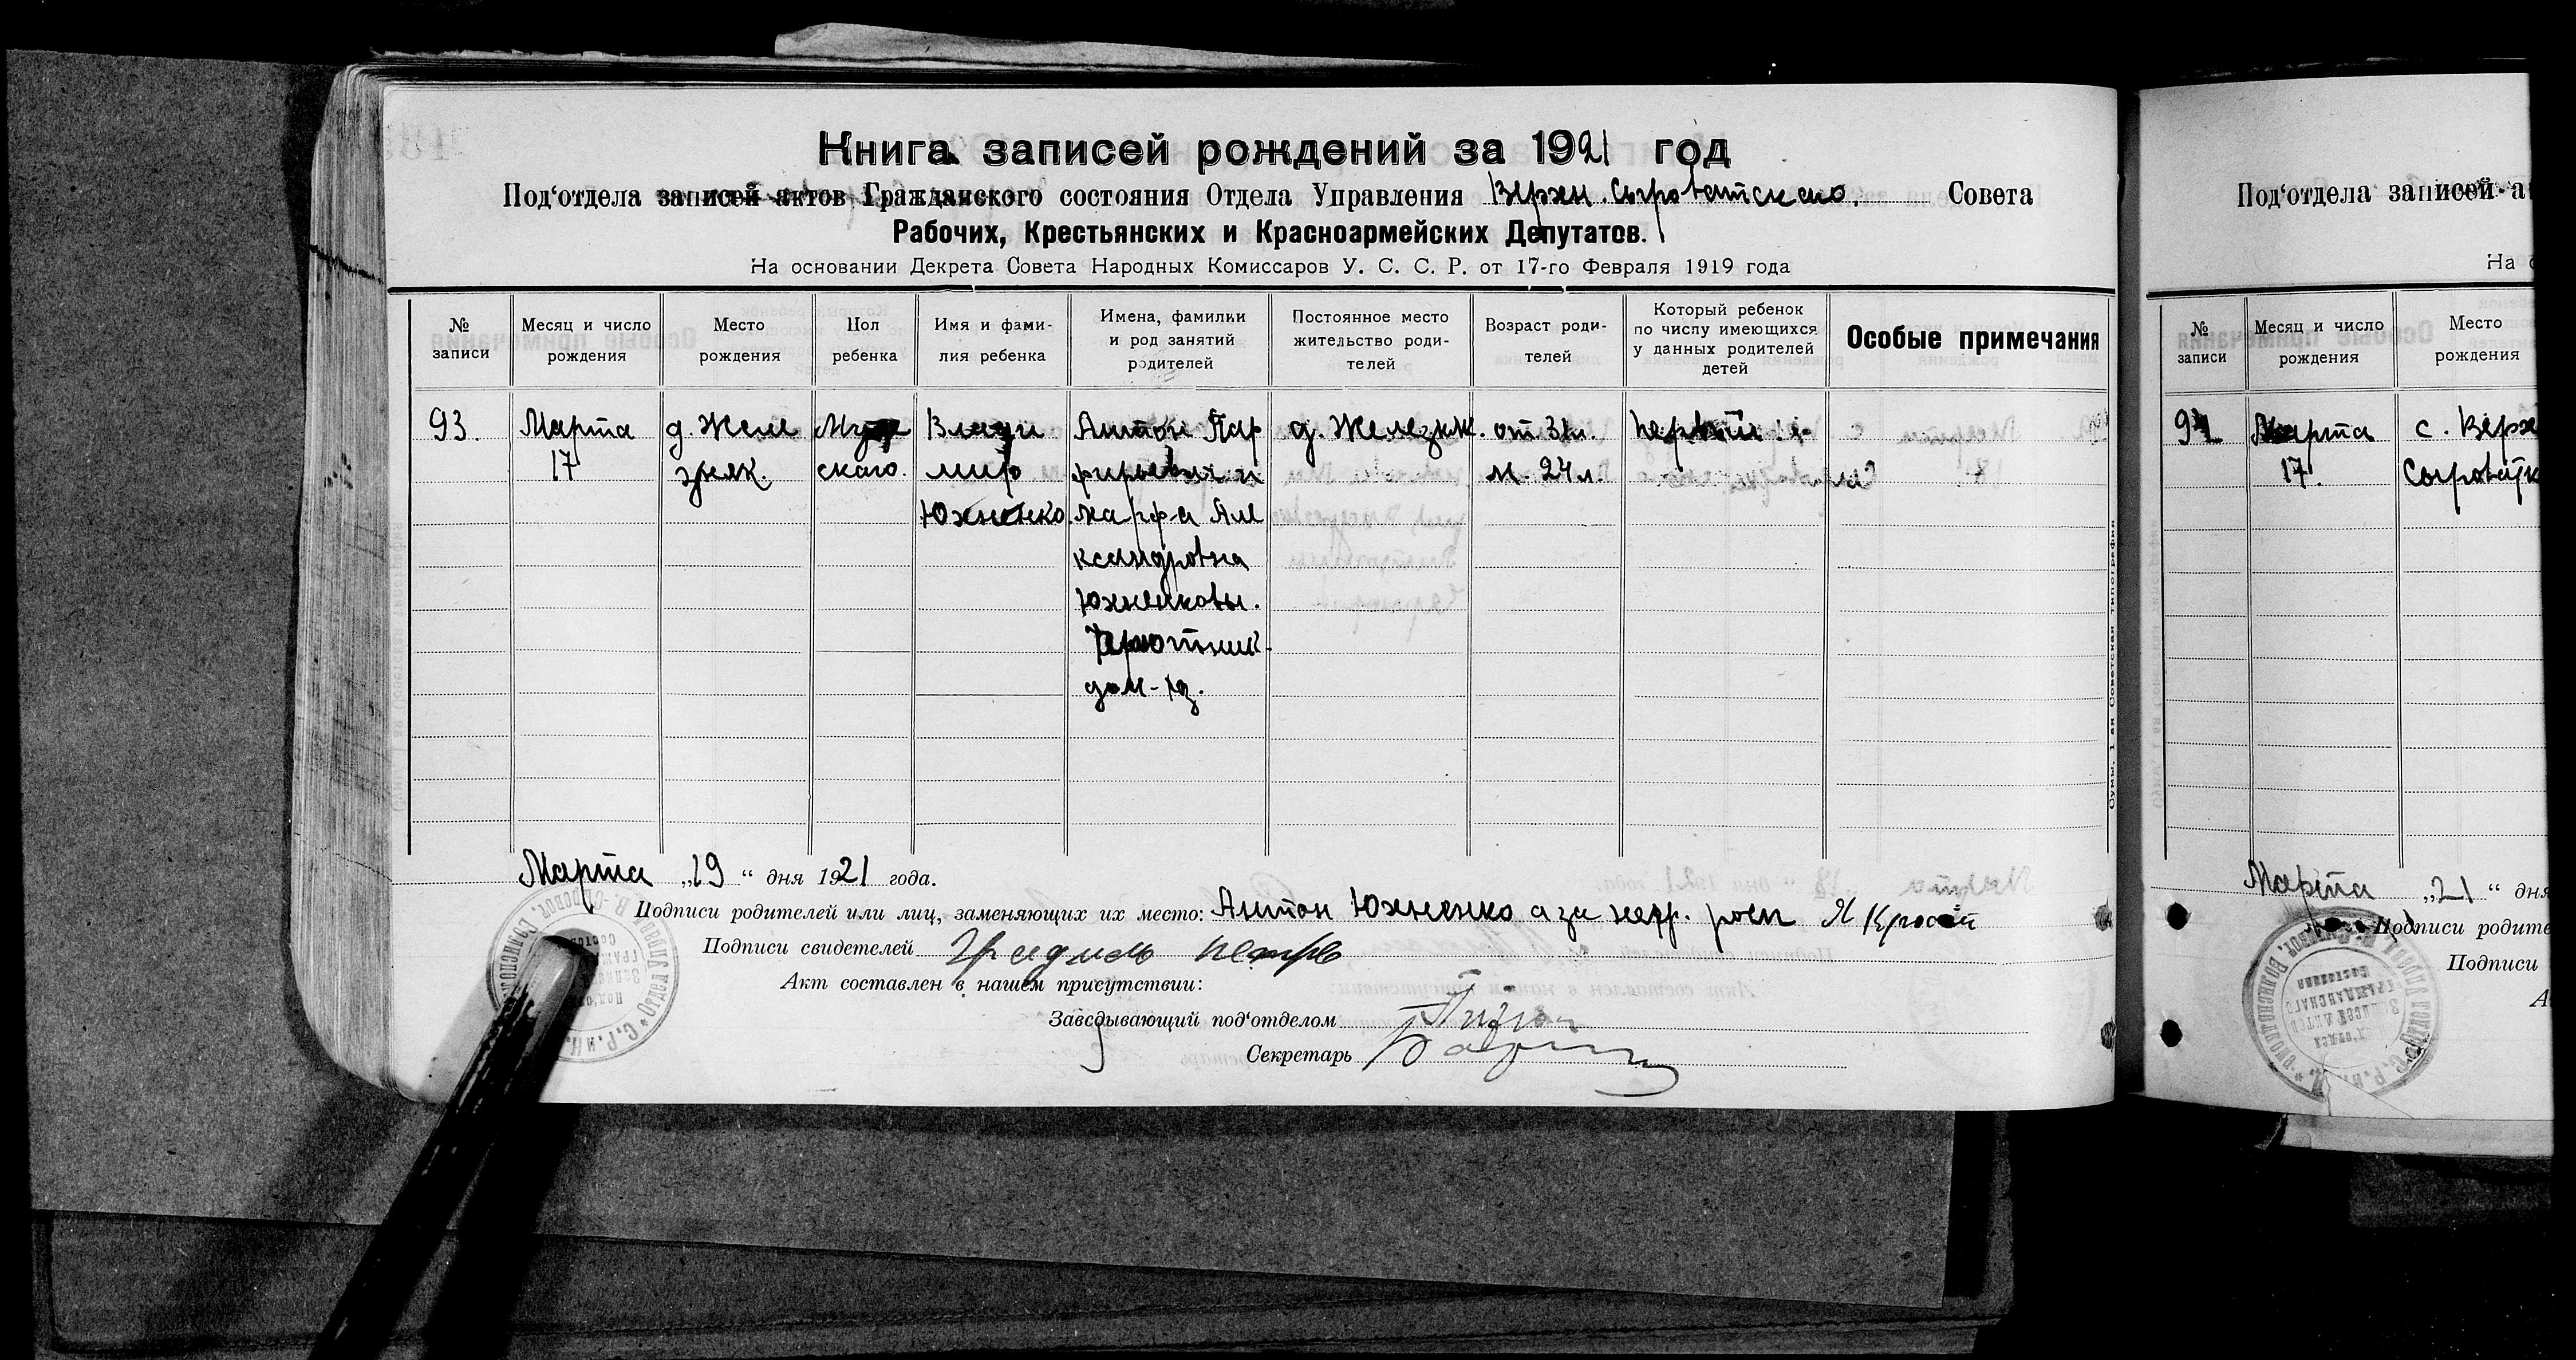 Книга записей рождений за 1921 год
Под‘отдела записей актов Гражданского состояния Отдела Управления Верхн. Сыроватского. Совета
Рабочих, Крестьянских и Красноармейских Депутатов.
На основании Декрета Совета Народных Комиссаров У. С. С. Р. от 17-го Февраля 1919 года
№ записи
Месяц и число рождения
Место рождения
Пол ребенка
Имя и фами-
лия ребенка
Имена, фамилии
и род занятий
родителей
Постоянное место
жительство роди-
телей
Возраст роди-
телей
Который ребенок
по числу имеющихся
у данных родителей
детей
Особые примечания
93.
Марта
17
д. Желе
зняк.
Муж
скаго.
Влади
мир
Юхненко.
Антон Пар
фирьевич и
Марфа Але
ксандровна
Юхненковы.
дом-хоз.
д. Железняк.
от 31 л.
м. 24 л.
первый
Марта „19“ дня 1921 года.
Подписи родителей или лиц, заменяющих их место: Антон Юхненко а за негр. росп Я
Подписи свидетелей
Акт составлен в нашем присутствии:
Заведывающий под‘отделом
Секретарь
Сумы, 1-ая Советская типография
Под‘отдела записей а
На
№ записи
Месяц и число рождения
Место рождения
94
Марта
17.
с. Верх
Сыроватк
Марта „21“ дня
Подписи родите
Подписи
А